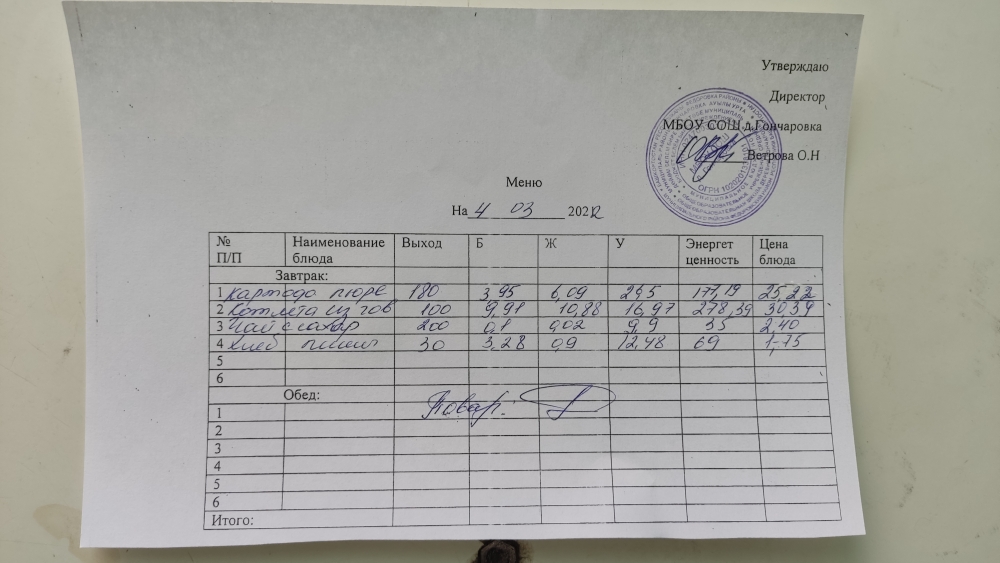 Утверждаю
Директор
МБОУ СОШ д.Гончаровка
Ветрова О.Н
ОГРН
Меню
На 4 03 2022
№ П/П Наименование блюда Выход Б Ж У Энергет ценность Цена блюда
Завтрак:
1 Картофо пюре 180 3,95 6,09 26,5 177,19 25,22
2 Котлета из гов 100 9,91 10,88 16,97 278,39 30,39
3 Чай с сахар 200 0,1 0,02 9,9 35 2,40
4 Хлеб 30 3,28 0,9 12,48 69 1-75
5
6
Обед:
Повар:
1
2
3
4
5
6
Итого: